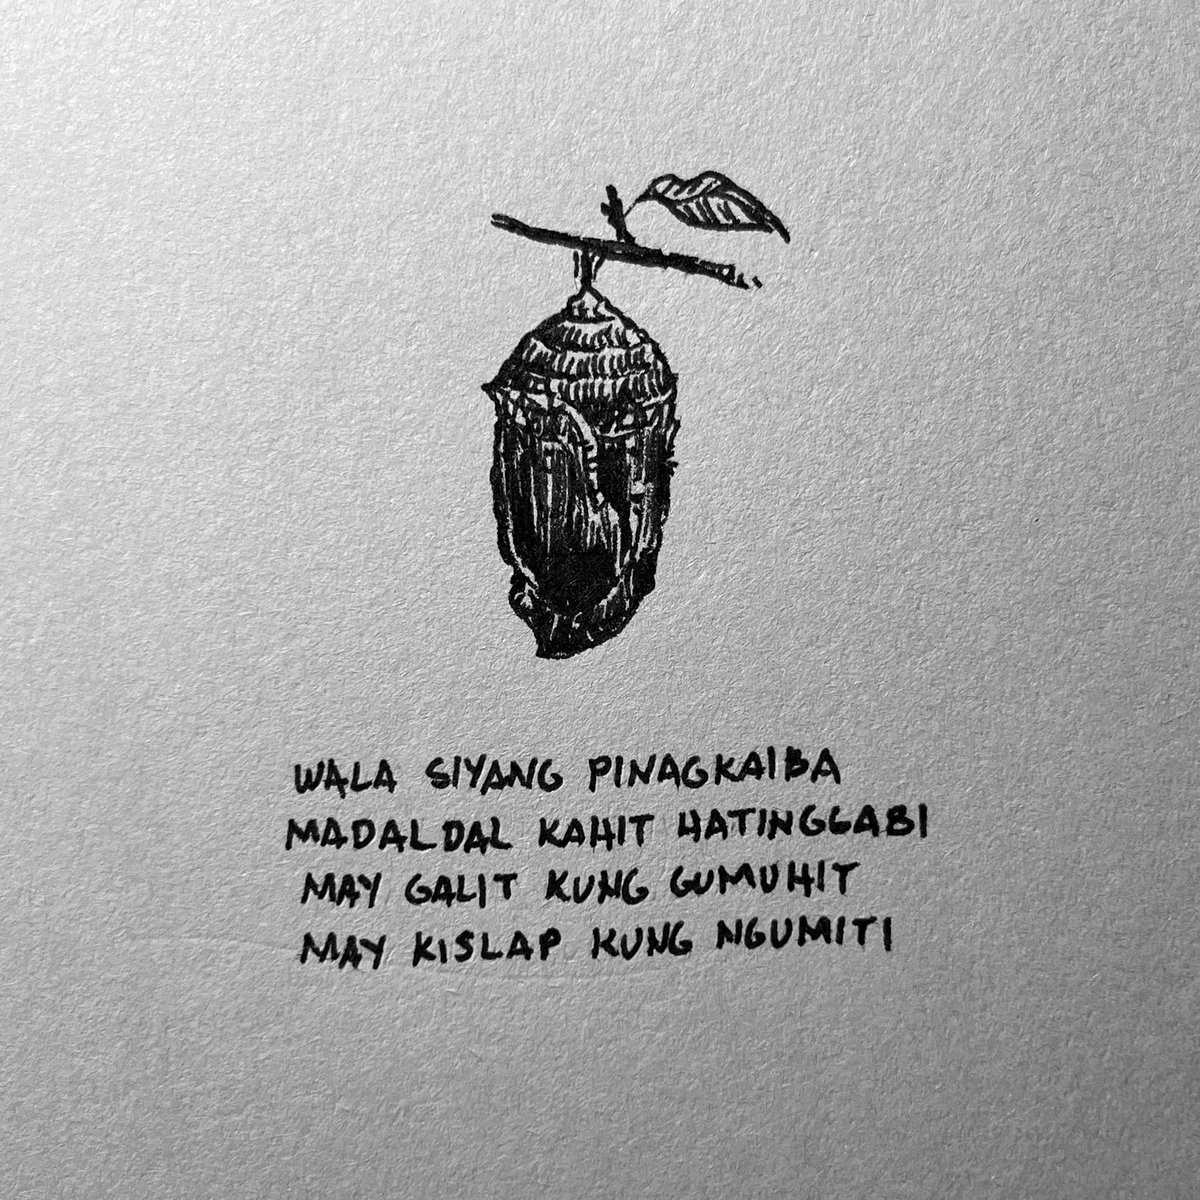 WALA SIYANG PINAGKAIBA
MADALDAL KAHIT HATINGGABI
MAY GALIT KUNG GUMUHIT
MAY KISLAP KUNG NGUMITI